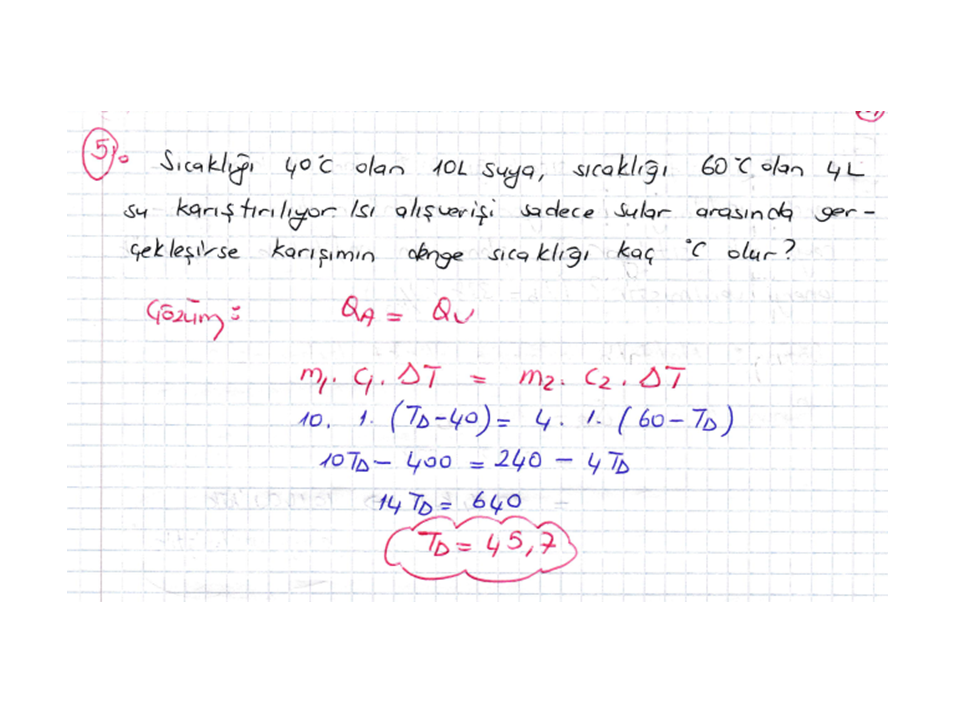 5). Sıcaklığı 40°C olan 10L suya, sıcaklığı 60°C olan 4L
su karıştırılıyor. Isı alışverişi sadece sular arasında ger-
çekleşirse karışımın denge sıcaklığı kaç °C olur?
Çözüm: QA = QV
m1. C1. ΔT = m2. C2. ΔT
10. 1. (TD-40) = 4. 1. (60-TD)
10TD - 400 = 240 - 4TD
14TD = 640
TD = 45,7